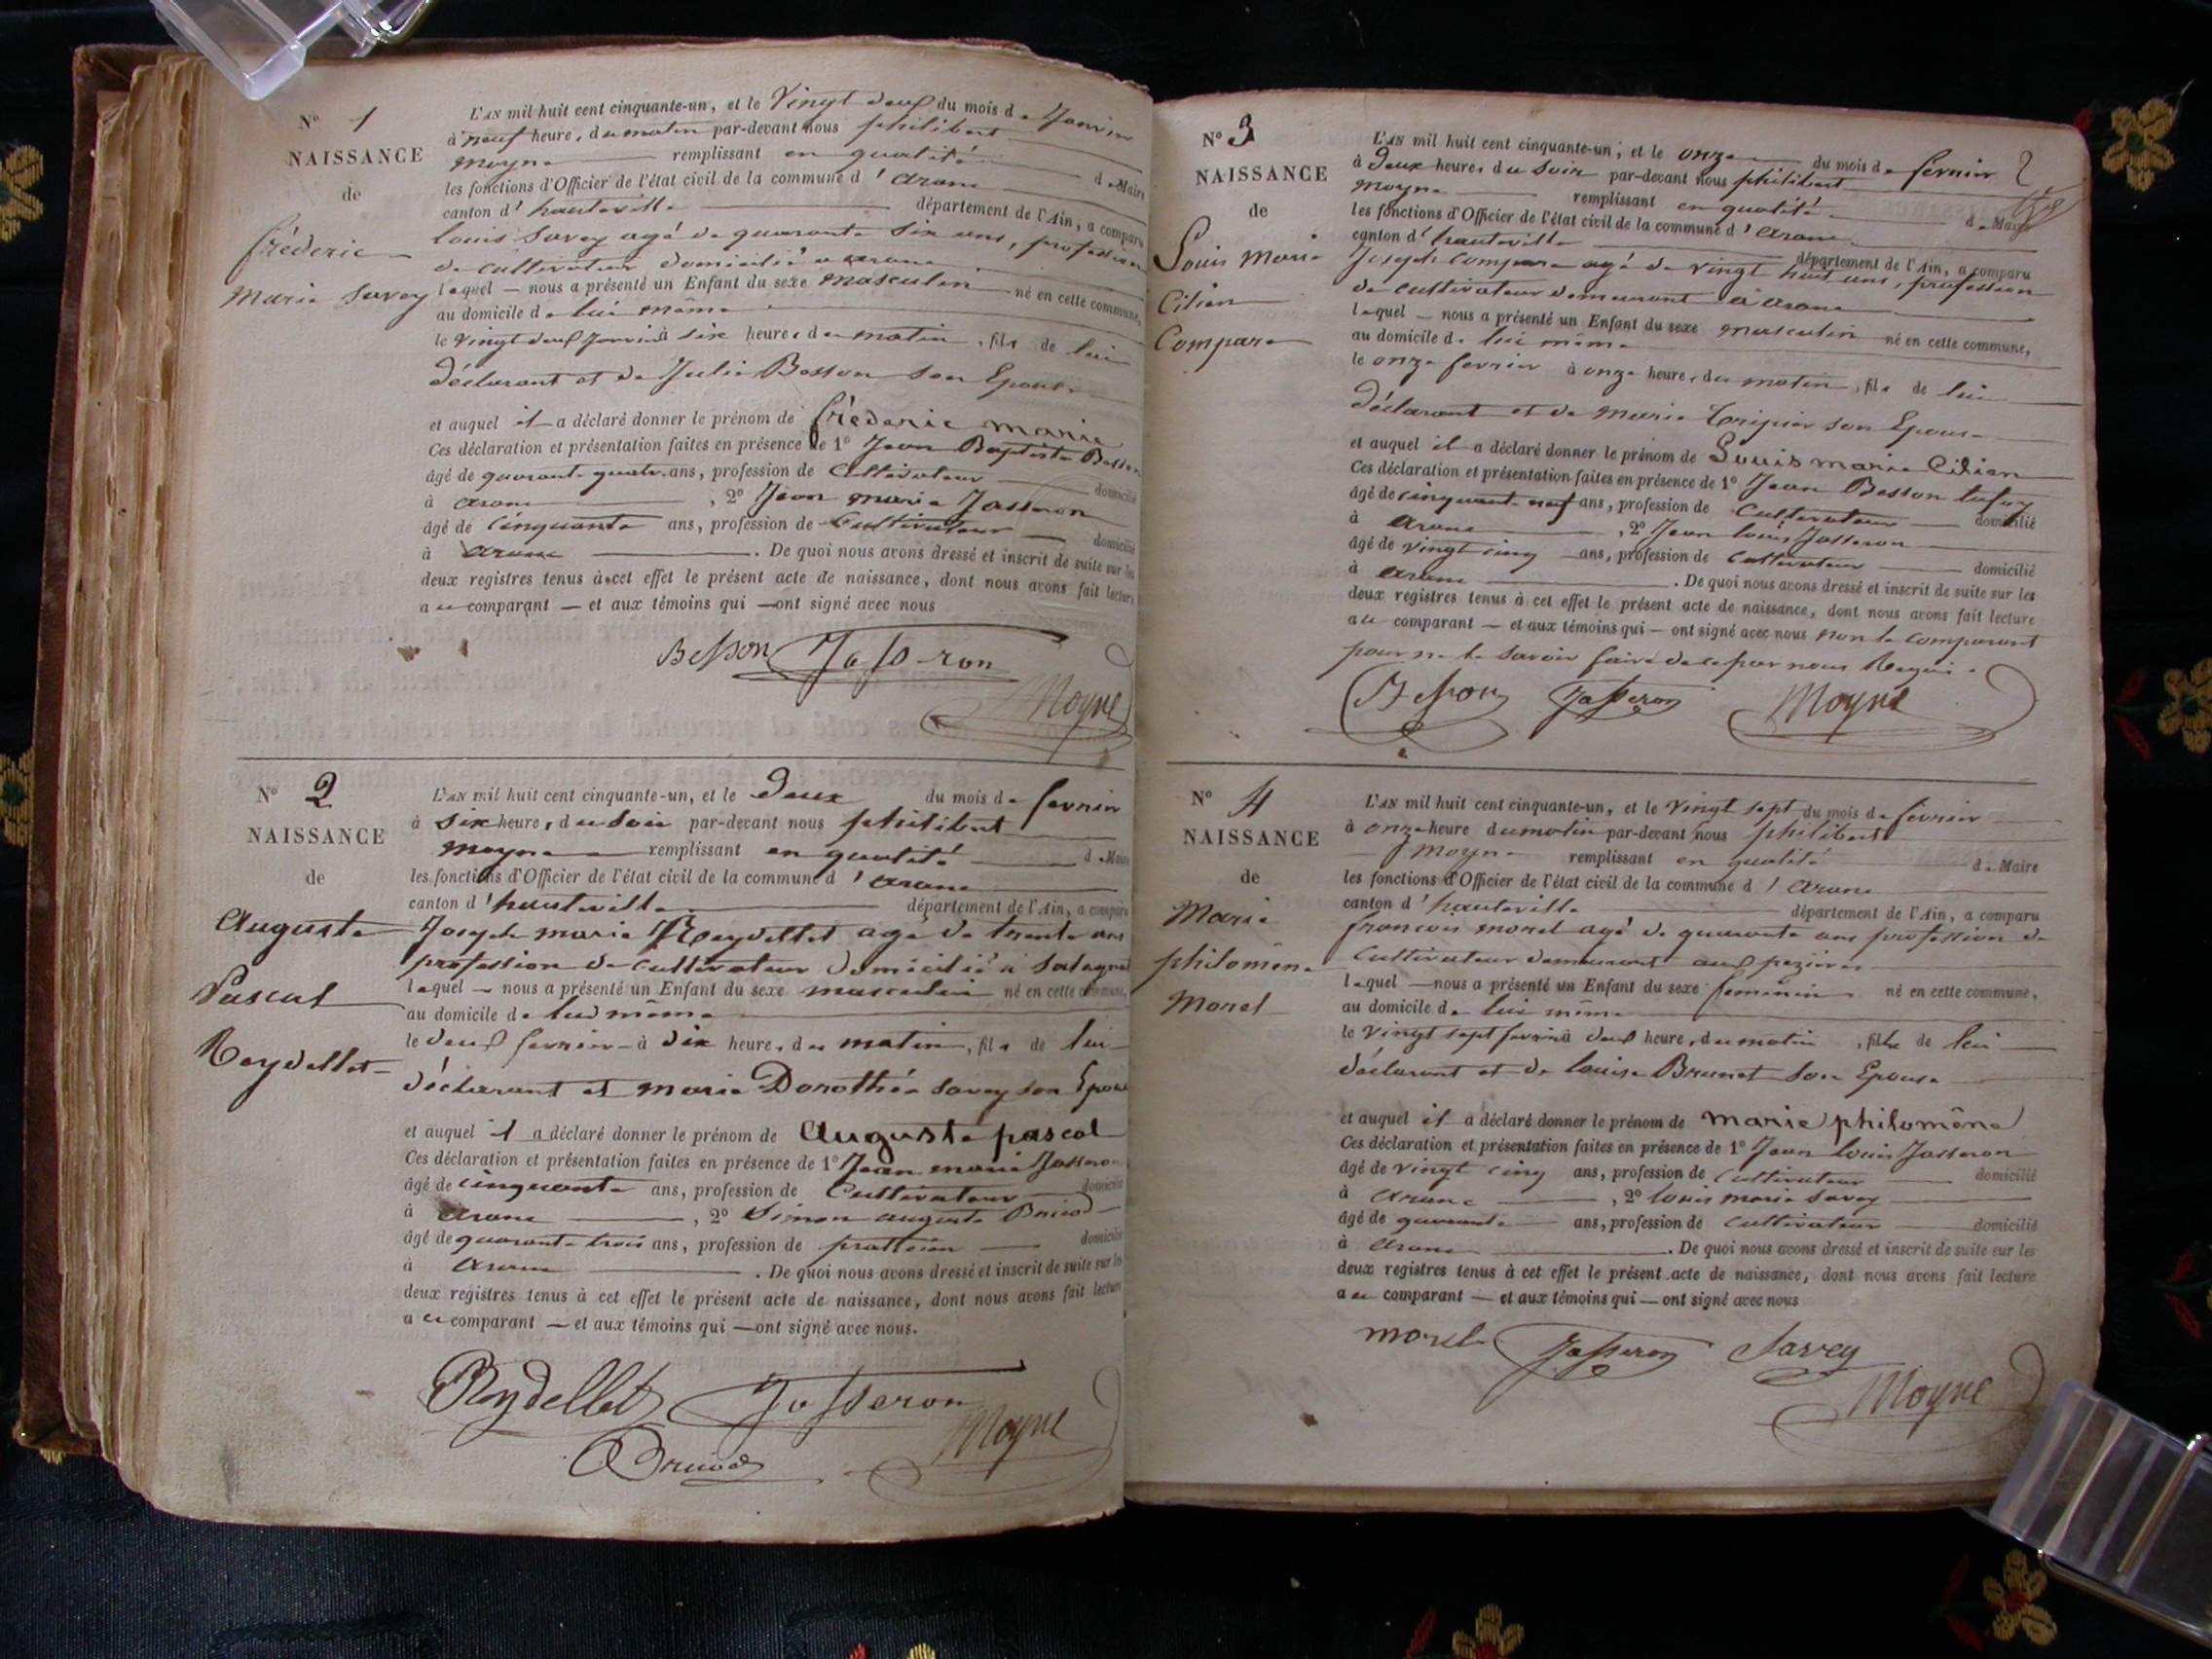 N° 1
NAISSANCE
de
fréderic
Marie Savey
L'AN mil huit cent cinquante-un, et le Vingt deux du mois de Janvier
à neuf heures du matin par-devant nous philibert
moyne remplissant en qualité de Maire
les fonctions d'Officier de l'état civil de la commune d'aranc
canton d'hauteville département de l'Ain, a comparu
louis Savey agé de quarante Six ans, profession
de cultivateur domicilié a aranc
lequel nous a présenté un Enfant du sexe masculin né en cette commune,
au domicile de lui même
le vingt deux Janvier à six heures du matin, fils de lui
déclarant et de Julie Besson son Epouse
et auquel il a déclaré donner le prénom de fréderic marie
Ces déclaration et présentation faites en présence de 1° Jean Baptiste Besson
âgé de quarante quatre ans, profession de Cultivateur domicilié
à aranc, 2° Jean marie Josseron
âgé de cinquante ans, profession de Cultivateur domicilié
à aranc. De quoi nous avons dressé et inscrit de suite sur les
deux registres tenus à cet effet le présent acte de naissance, dont nous avons fait lecture
au comparant et aux témoins qui ont signé avec nous
Besson Josseron
Moyne
N° 2
NAISSANCE
de
Auguste
Pascal
Reydellet
L'AN mil huit cent cinquante-un, et le Deux du mois de fevrier
à six heures du Soir par-devant nous philibert
moyne remplissant en qualité de Maire
les fonctions d'Officier de l'état civil de la commune d'aranc
canton d'hauteville département de l'Ain, a comparu
Joseph marie Reydellet agé de trente ans
profession de cultivateur domicilié à
lequel nous a présenté un Enfant du sexe masculin né en cette commune,
au domicile de lui même
le deux fevrier à dix heures du matin, fils de lui
déclarant et marie Dorothée Savey son Epouse
et auquel il a déclaré donner le prénom de Auguste pascal
Ces déclaration et présentation faites en présence de 1° Jean marie Josseron
âgé de cinquante ans, profession de Cultivateur domicilié
à aranc, 2° Simon auguste
âgé de quarante trois ans, profession de domicilié
à aranc. De quoi nous avons dressé et inscrit de suite sur les
deux registres tenus à cet effet le présent acte de naissance, dont nous avons fait lecture
au comparant et aux témoins qui ont signé avec nous.
Reydellet Josseron
Moyne
N° 3
NAISSANCE
de
Louis Marie
Cilien
Compare
L'AN mil huit cent cinquante-un, et le onze du mois de fevrier 2
à deux heures du Soir par-devant nous philibert
moyne remplissant en qualité de Maire
les fonctions d'Officier de l'état civil de la commune d'aranc
canton d'hauteville département de l'Ain, a comparu
Joseph Compare agé de vingt huit ans, profession
de cultivateur demeurant à aranc
lequel nous a présenté un Enfant du sexe masculin né en cette commune,
au domicile de lui même
le onze fevrier à onze heures du matin, fils de lui
déclarant et de marie Tripier son Epouse
et auquel il a déclaré donner le prénom de Louis marie Cilien
Ces déclaration et présentation faites en présence de 1° Jean Besson
âgé de cinquante neuf ans, profession de Cultivateur domicilié
à aranc, 2° Jean louis Josseron
âgé de vingt cinq ans, profession de Cultivateur domicilié
à aranc. De quoi nous avons dressé et inscrit de suite sur les
deux registres tenus à cet effet le présent acte de naissance, dont nous avons fait lecture
au comparant et aux témoins qui ont signé avec nous non le comparant
pour ne le savoir faire de ce par nous Requis.
Besson Josseron Moyne
N° 4
NAISSANCE
de
Marie
philomène
Morel
L'AN mil huit cent cinquante-un, et le vingt sept du mois de fevrier
à onze heure du matin par-devant nous philibert
moyne remplissant en qualité de Maire
les fonctions d'Officier de l'état civil de la commune d'aranc
canton d'hauteville département de l'Ain, a comparu
francois morel agé de quarante ans profession de
Cultivateur demeurant aux pezières
lequel nous a présenté un Enfant du sexe féminin né en cette commune,
au domicile de lui même
le vingt sept fevrier à deux heures du matin, fille de lui
déclarant et de louise Brunet son Epouse
et auquel il a déclaré donner le prénom de marie philomène
Ces déclaration et présentation faites en présence de 1° Jean louis Josseron
âgé de vingt cinq ans, profession de Cultivateur domicilié
à aranc, 2° louis marie Savey
âgé de quarante ans, profession de Cultivateur domicilié
à aranc. De quoi nous avons dressé et inscrit de suite sur les
deux registres tenus à cet effet le présent acte de naissance, dont nous avons fait lecture
au comparant et aux témoins qui ont signé avec nous
morel Josseron Savey
Moyne